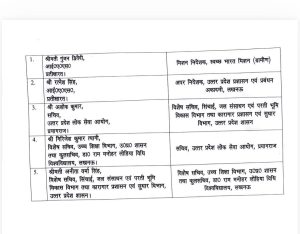 1.
श्रीमती गुंजन द्विवेदी,
आई०ए०एस०
प्रतीक्षारत।
मिशन निदेशक, स्वच्छ भारत मिशन (ग्रामीण)
2.
श्री रमेश सिंह,
आई०ए०एस०
प्रतीक्षारत।
अपर निदेशक, उत्तर प्रदेश प्रशासन एवं प्रबंधन
अकादमी, लखनऊ
3.
श्री अशोक कुमार,
सचिव,
उत्तर प्रदेश लोक सेवा आयोग,
प्रयागराज।
विशेष सचिव, सिंचाई, जल संसाधन एवं परती भूमि
विकास विभाग तथा कारागार प्रशासन एवं सुधार
विभाग,
उत्तर प्रदेश शासन
4.
श्री गिरिजेश कुमार त्यागी,
विशेष सचिव, उच्च शिक्षा विभाग, उ०प्र० शासन
तथा कुलसचिव, डा० राम मनोहर लोहिया विधि
विश्वविद्यालय, लखनऊ।
सचिव, उत्तर प्रदेश लोक सेवा आयोग, प्रयागराज
5.
श्रीमती अनीता वर्मा सिंह,
विशेष सचिव, सिंचाई, जल संसाधन एवं परती भूमि
विकास विभाग तथा कारागार प्रशासन एवं सुधार विभाग,
उत्तर प्रदेश शासन।
विशेष सचिव, उच्च शिक्षा विभाग, उ०प्र० शासन
तथा कुलसचिव, डा० राम मनोहर लोहिया विधि
विश्वविद्यालय, लखनऊ